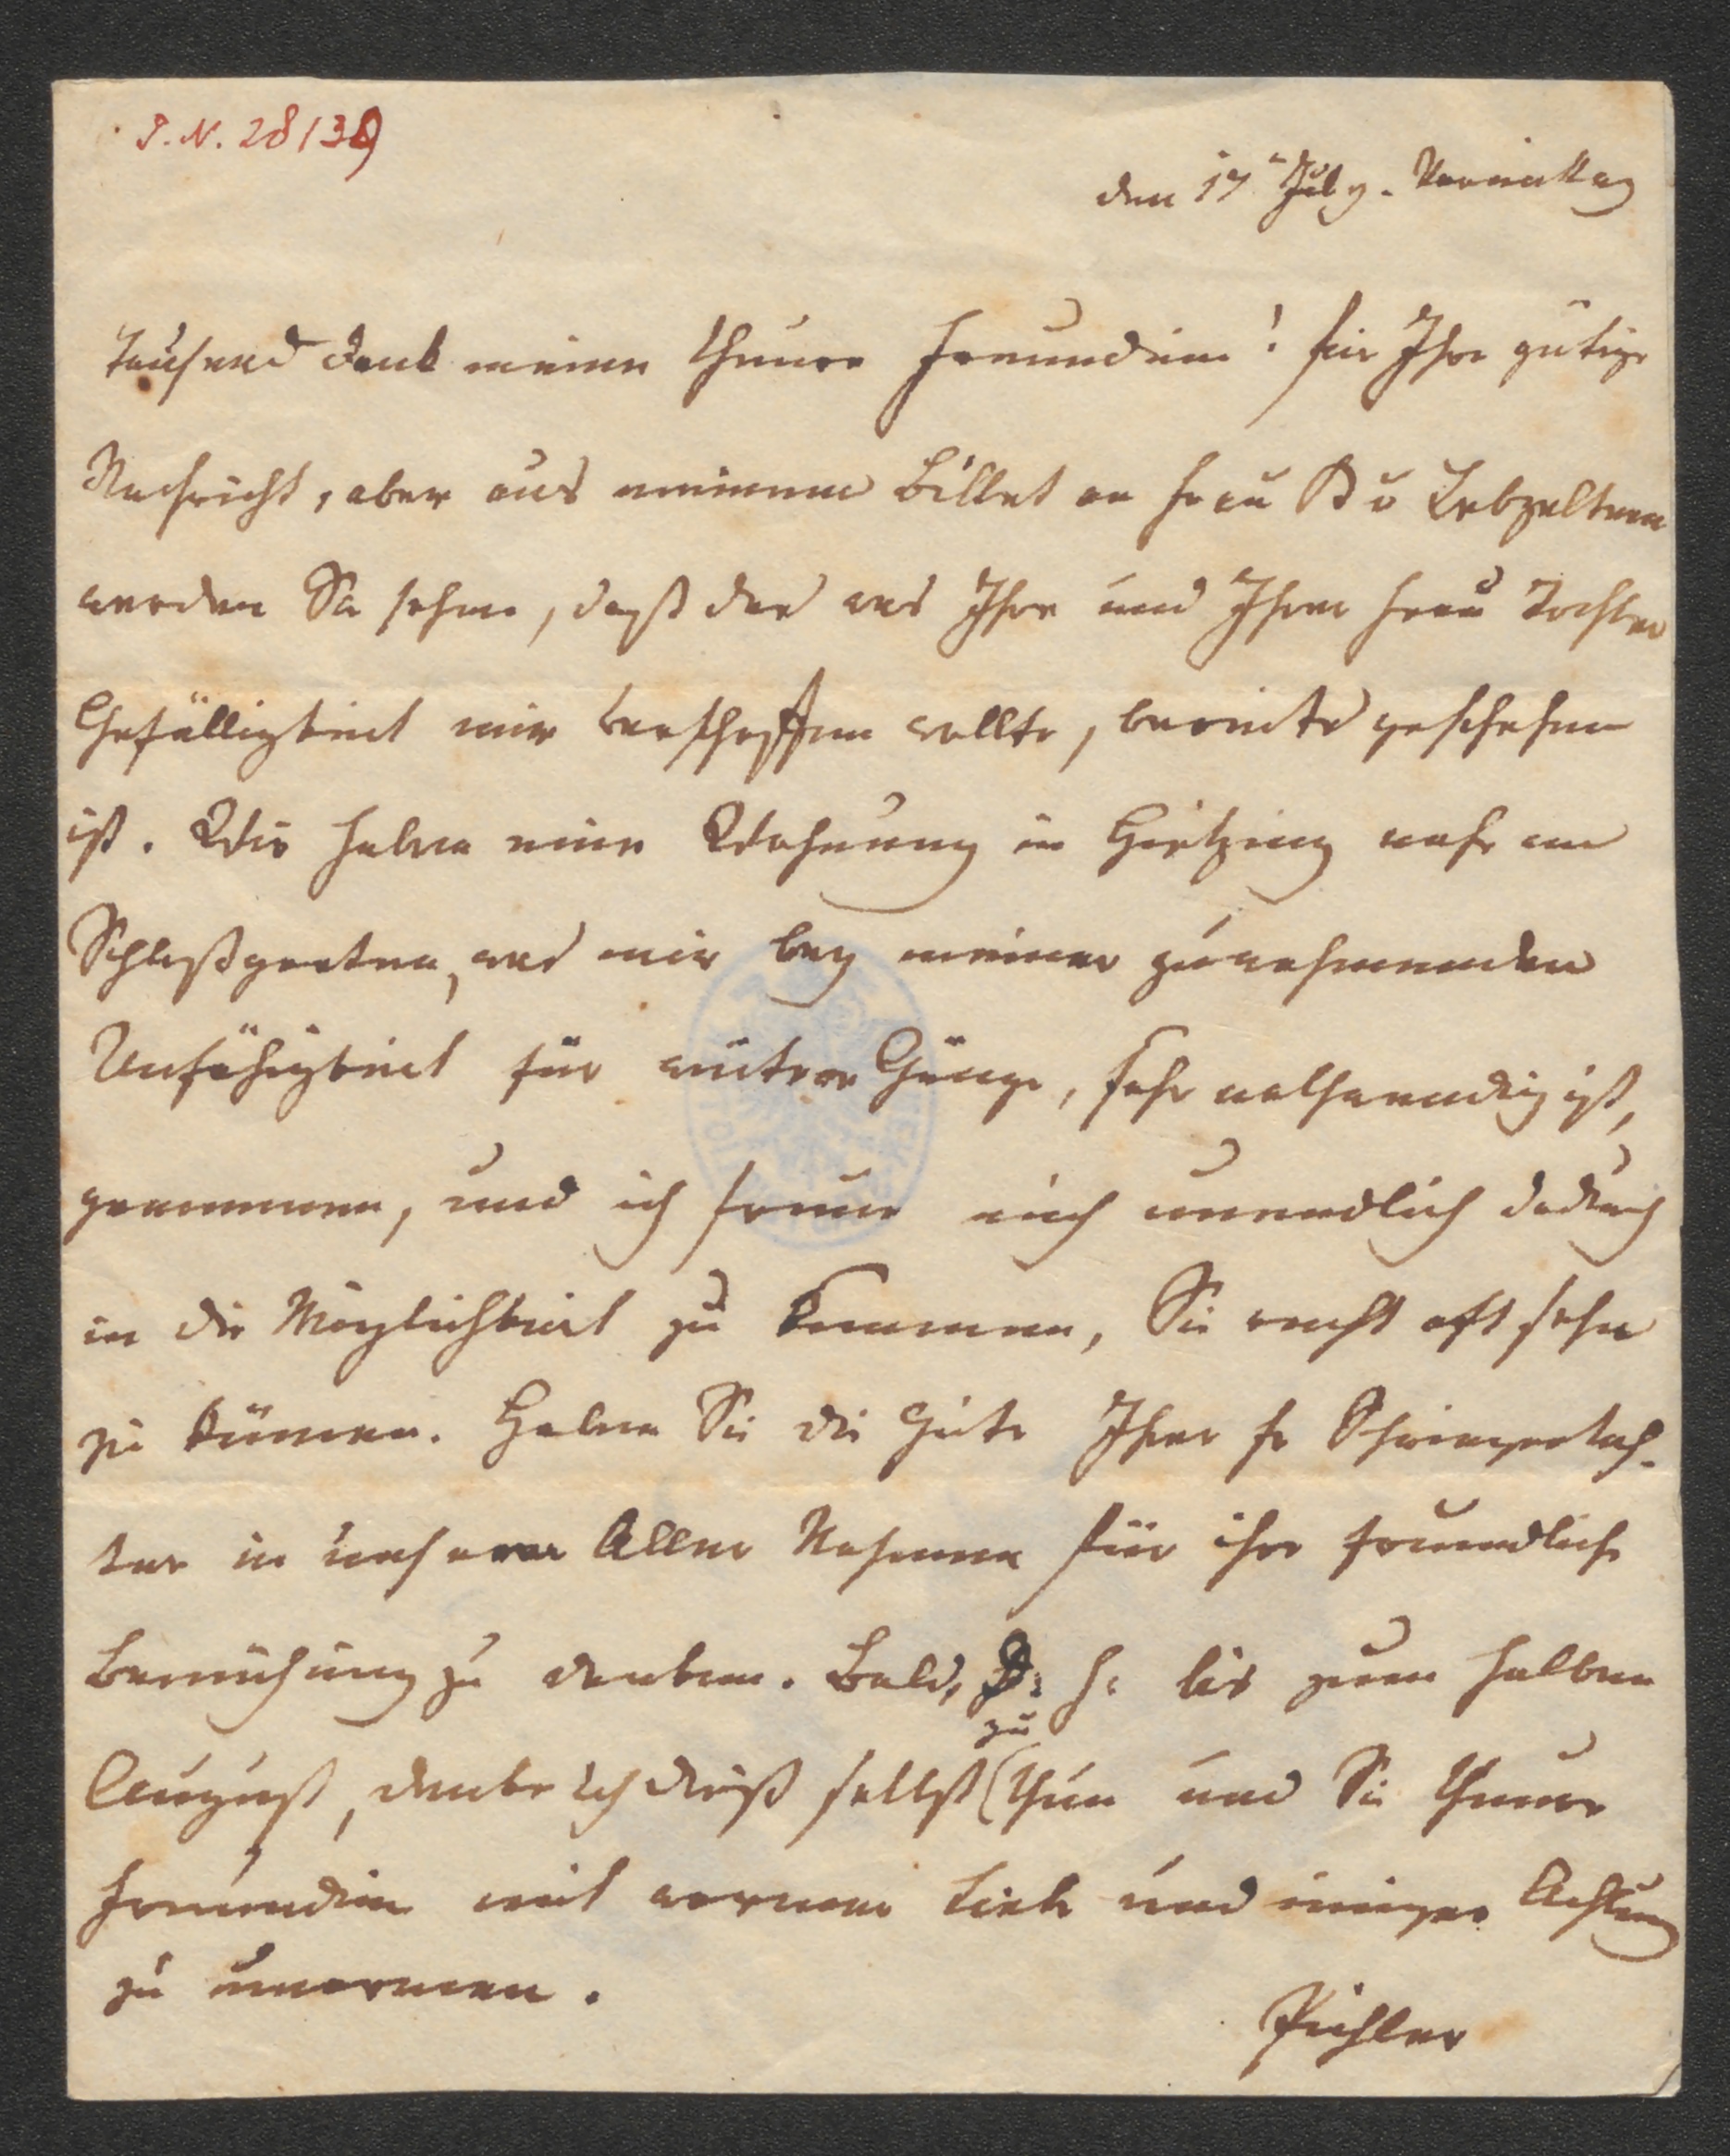 I. N. 28139
den 17t July. Vormittag
Tausend Dank meine theure Freundinn! für Ihre gütige
Nachricht, aber aus meinem Billet an Frau B v Lebzeltern
werden Sie sehen, daß das was Ihre und Ihrer Frau Tochter
Gefälligkeit mir verschaffen wollte, bereits geschehen
ist. Wir haben eine Wohnung in Hietzing nahe am
Schloßgarten, was mir bey meiner zunehmenden
Unfähigkeit für weitere Gänge, sehr nothwendig ist,
genommen, und ich freue mich unendlich dadurch
in die Möglichkeit zu kommen, Sie recht oft sehn
zu können. Haben Sie die Güte Ihrer Fr Schwiegertoch-
ter in unserer Aller Nahmen für ihre freundliche
Bemühung zu danken. Bald, d: h: bis zum halben
August, denke ich dieß selbst zu thun und Sie theure
Freundinn mit warmer Liebe und inniger Achtung
zu umarmen.
Pichler